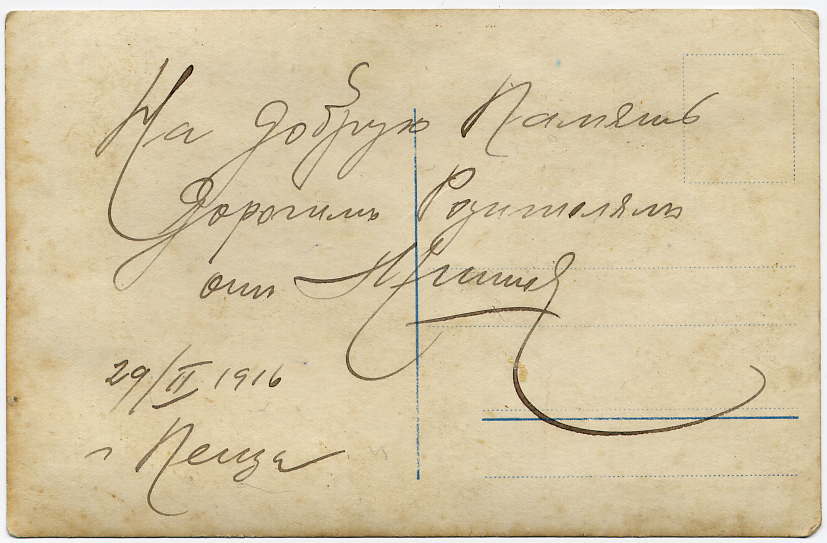 На добрую Память
Дорогимъ Родителямъ
отъ
29/II 1916
г Пенза